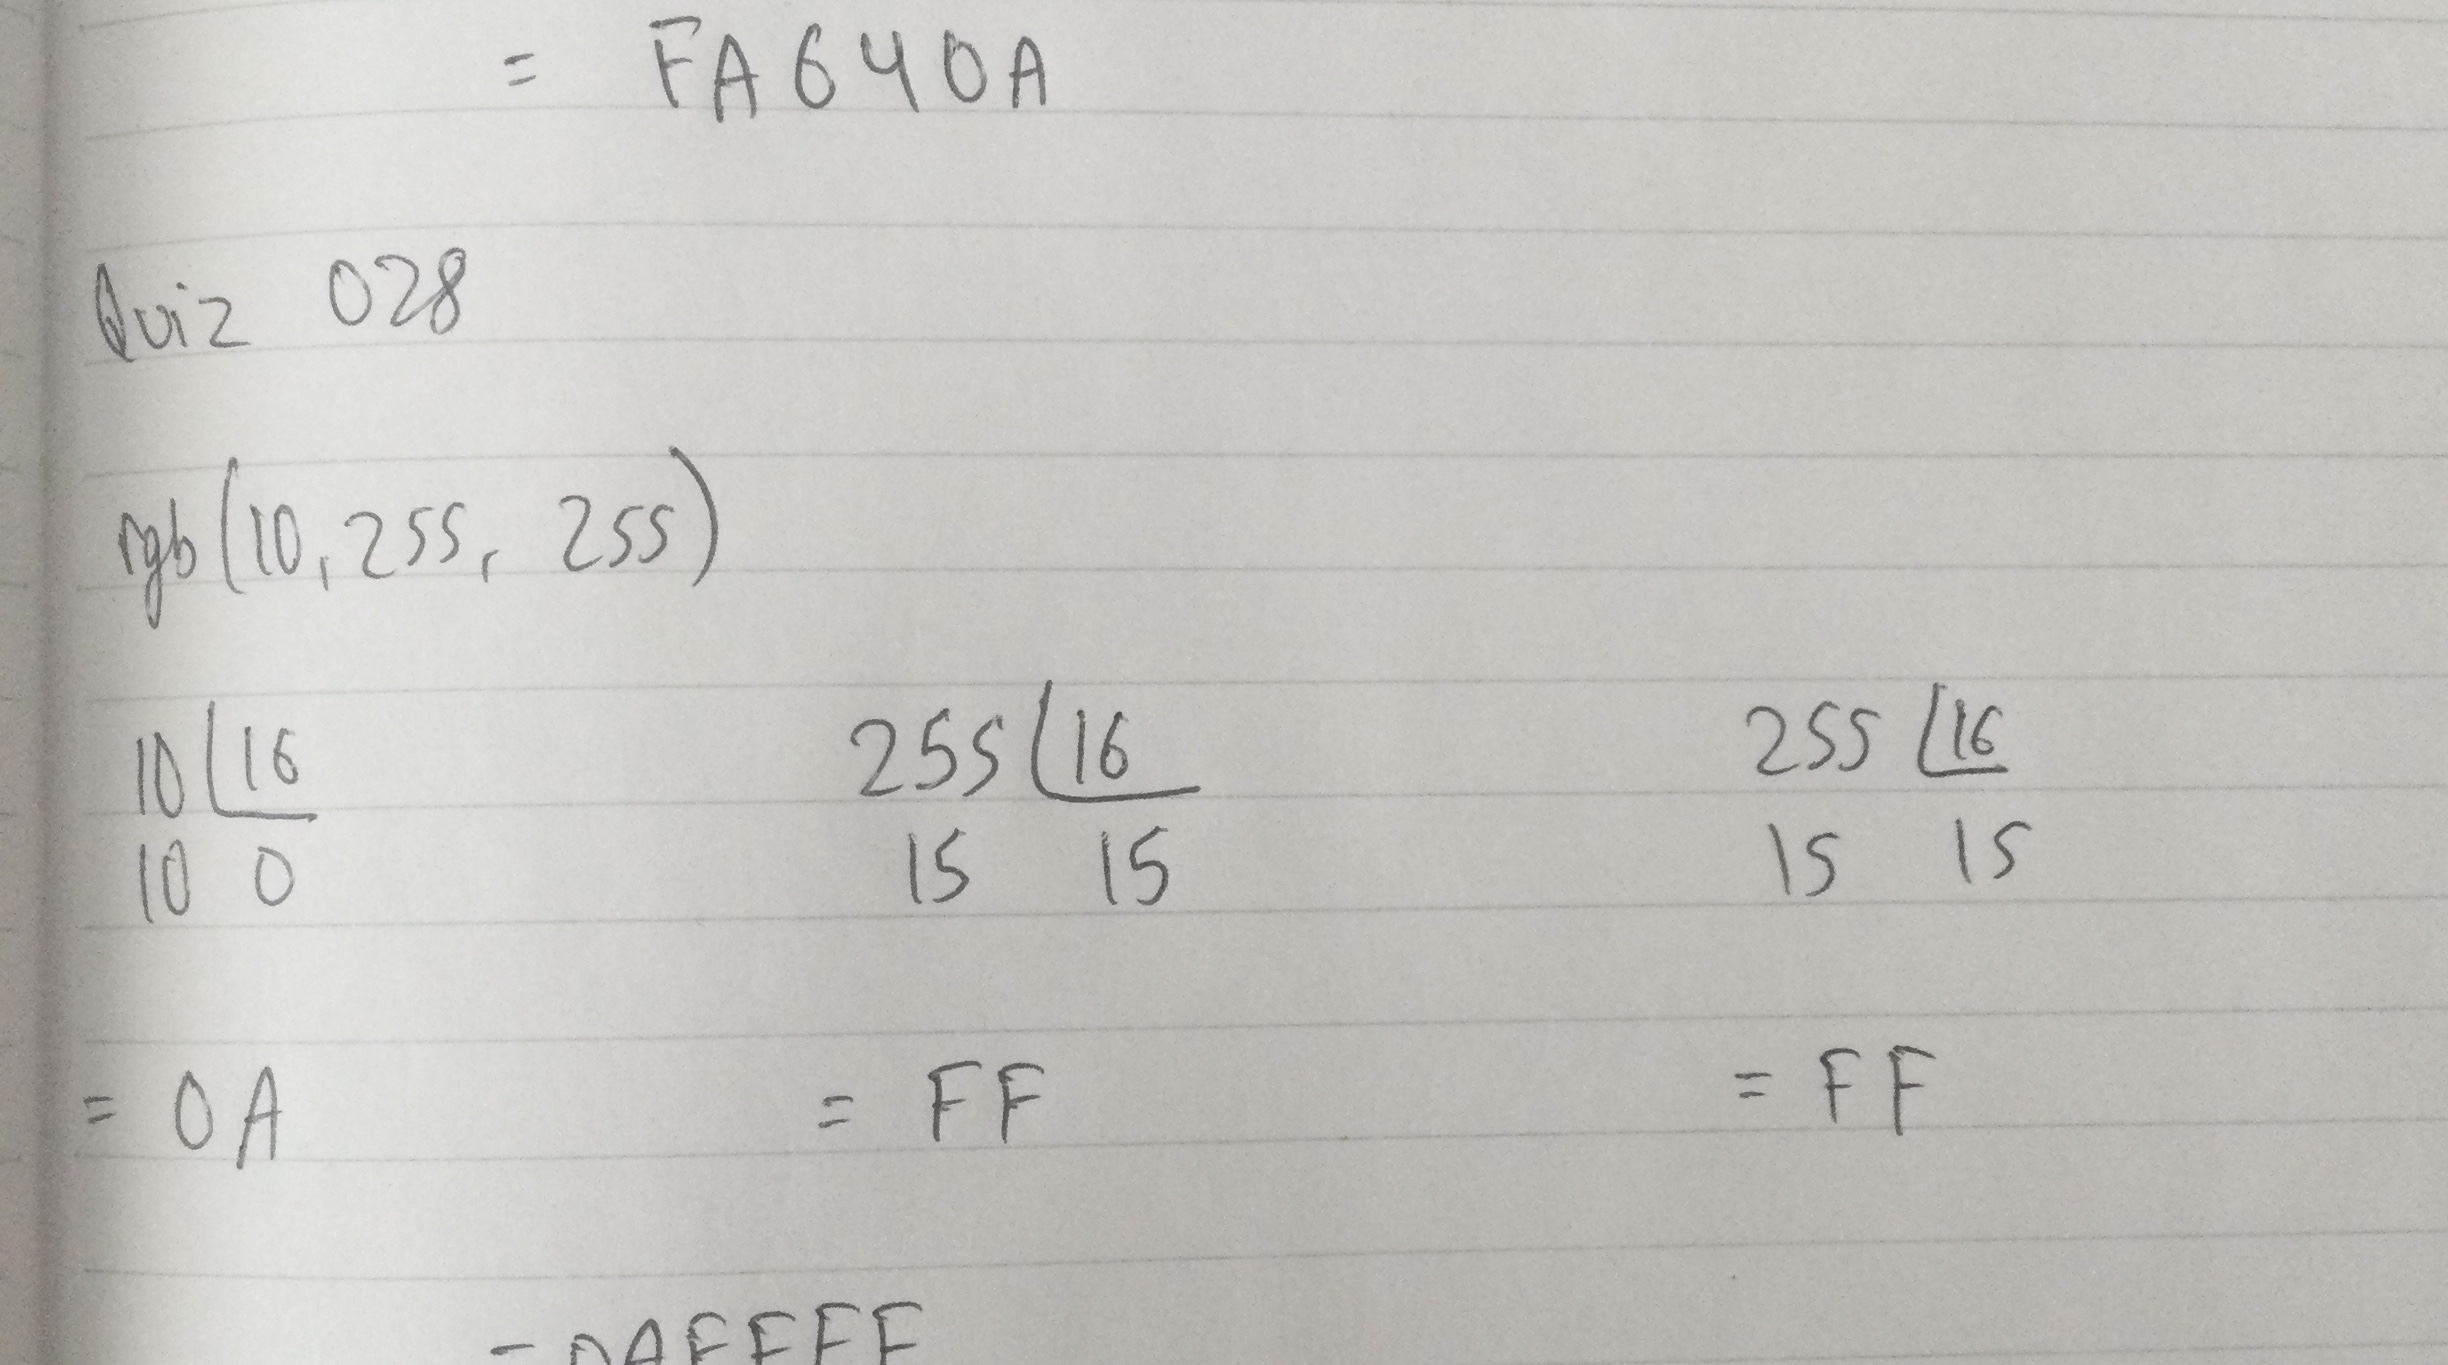 = FA640A
Quiz 028
rgb(10, 255, 255)
10 16 255 16 255 16
10 0 15 15 15 15
= 0A = FF = FF
= 0AFFFF